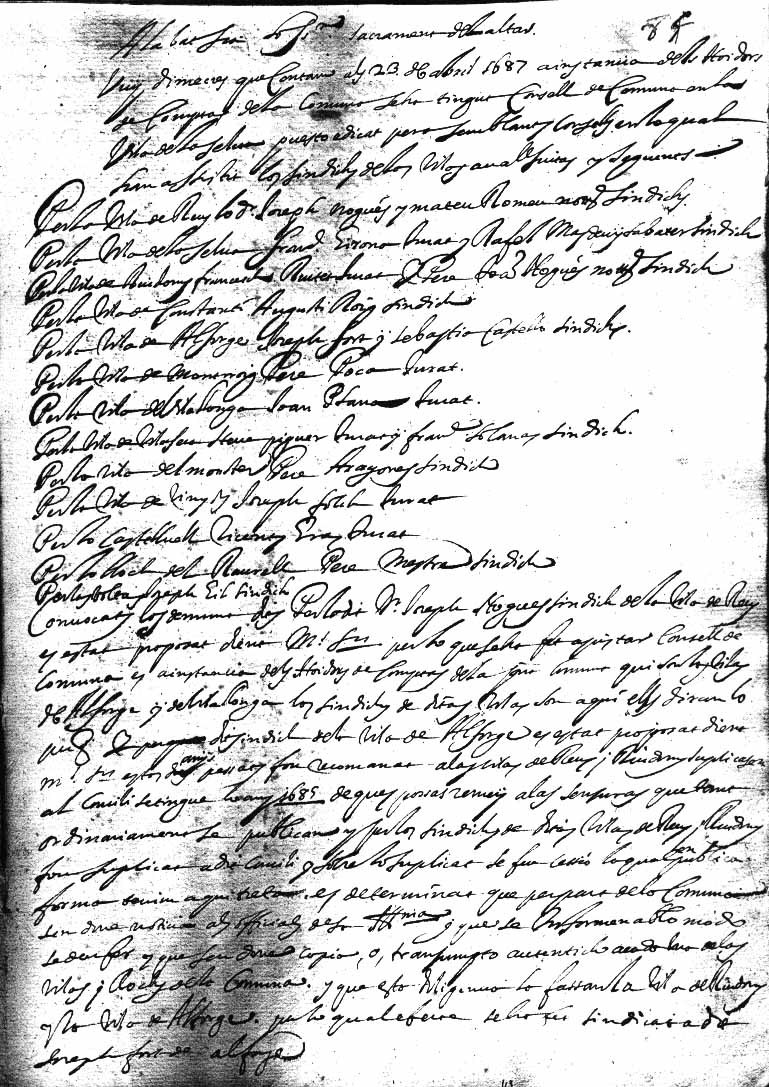 Alabat sia lo SSm sacrament del altar.
85
Vuy dimecres que Contam als 23 de Abril 1687 a instancia dels Hoidors
de Comptes de la Comuna se ha tingut Consell de Comuna en la
Vila de la Selva puesto dedicat pera semblants Consells en lo qual
han assistit los sindichs de les Viles avall scrites y seguents
Per la Vila de Reus lo Dr. Joseph Nogues y Mateu Romeu nott sindichs.
Per la Vila de la Selva Frand Girona Jurat y Rafel Masdeu y sabater sindich
Per la Vila de Riudoms Francesch Jurat y Pere Joan Nogués nott sindich
Per la Vila de Constantí Augusti Roig sindich
Per la Vila de Alforge Joseph fort y sebastia Castello sindichs.
Per la Vila de Montroig Pere Roca Jurat.
Per la Vila de Vilallonga Joan Plana Jurat.
Per la Vila de Vilaseca Steve piquer Jurat y frand solanes sindich.
Per la Vila del monster Pere Aragones sindich
Per la Vila de Vinyols Joseph folch Jurat
Per lo Castellvell Vicens Jurat
Per lo lloch del Rourell Pere Mestre sindich
Per les Joseph Gil sindich
Convocats los demunt dits Per lo dit Dr. Joseph Nogues sindich de la Vila de Reus
es estat proposat dient M. Srs per lo que se ha fet ajustar Consell de
Comuna es a instancia dels Hoidors de Comptes de la present Comuna qui son les Viles
de Alforge y de Vilallonga los sindichs de dites Viles son aqui ells diran lo
perque y perque dit sindich de la Vila de Alforge es estat proposat dient
m. Srs estos anys passats fou recomanat a las Viles de Reus y Riudoms suplicasen
al Concili se tingue lo any 1685 de que posas remey a las sensuras que tant
ordinariament se publican y per los sindichs de dites Viles de Reus y Riudoms
fou suplicat a dit Concili y sobre lo suplicat se feu lo qual en publica
forma tenim aqui es determinat que per part de la Comuna
sen done noticia als officials de sa Illma y que se Informen ab lo modo
se deu fer y que sen done copia, o, transumpto autentich a cada una de las
Vilas y llochs de la Comuna. y que esta diligencia la fassan la Vila de Riudoms
y la Vila de Alforge. per lo qual efecte se ha fet sindicat a dit
Joseph fort de alforge